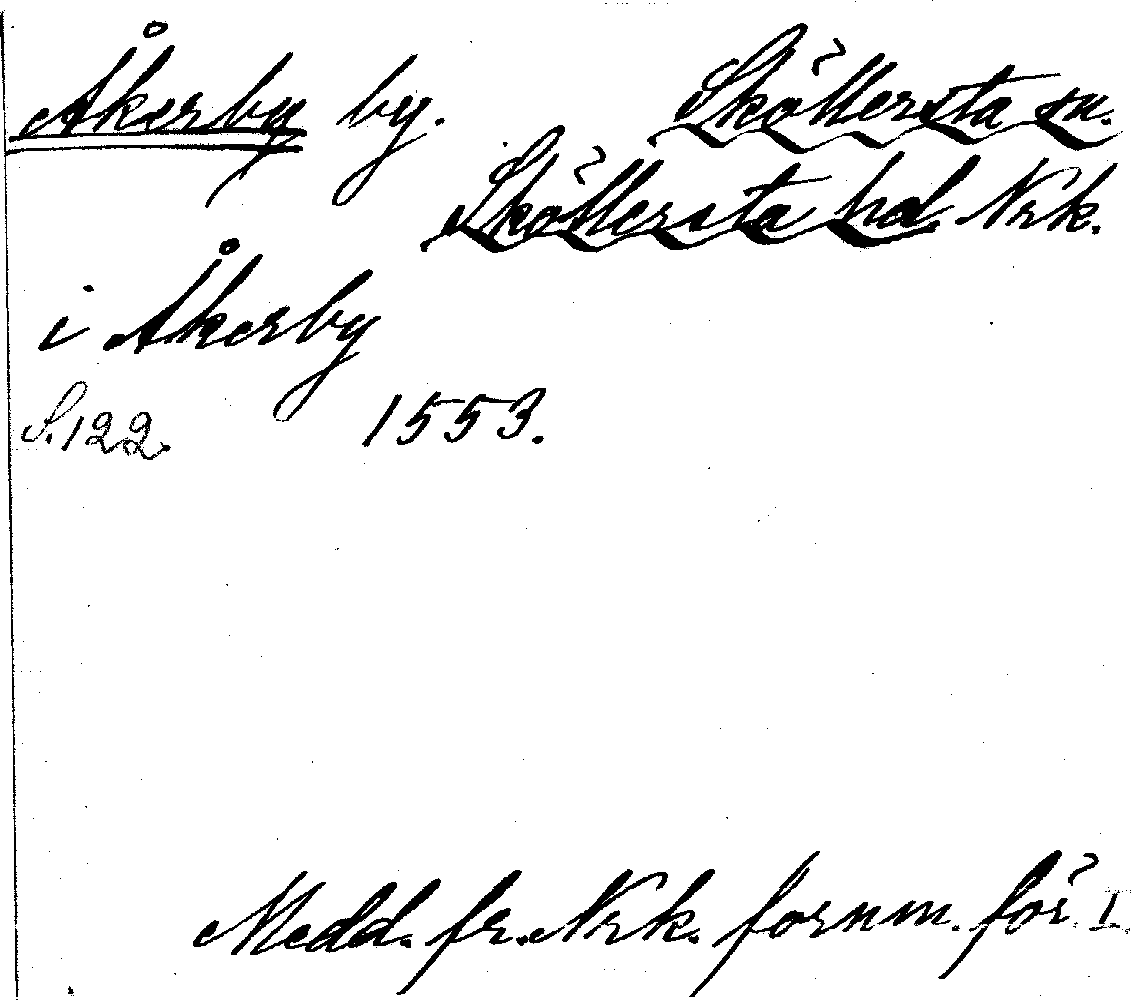 Åkerby by. Sköllersta sn.
Sköllersta hd. Nrk.
i Åkerby
S. 122. 1553.
Medd. fr. Nrk. fornm. för I.